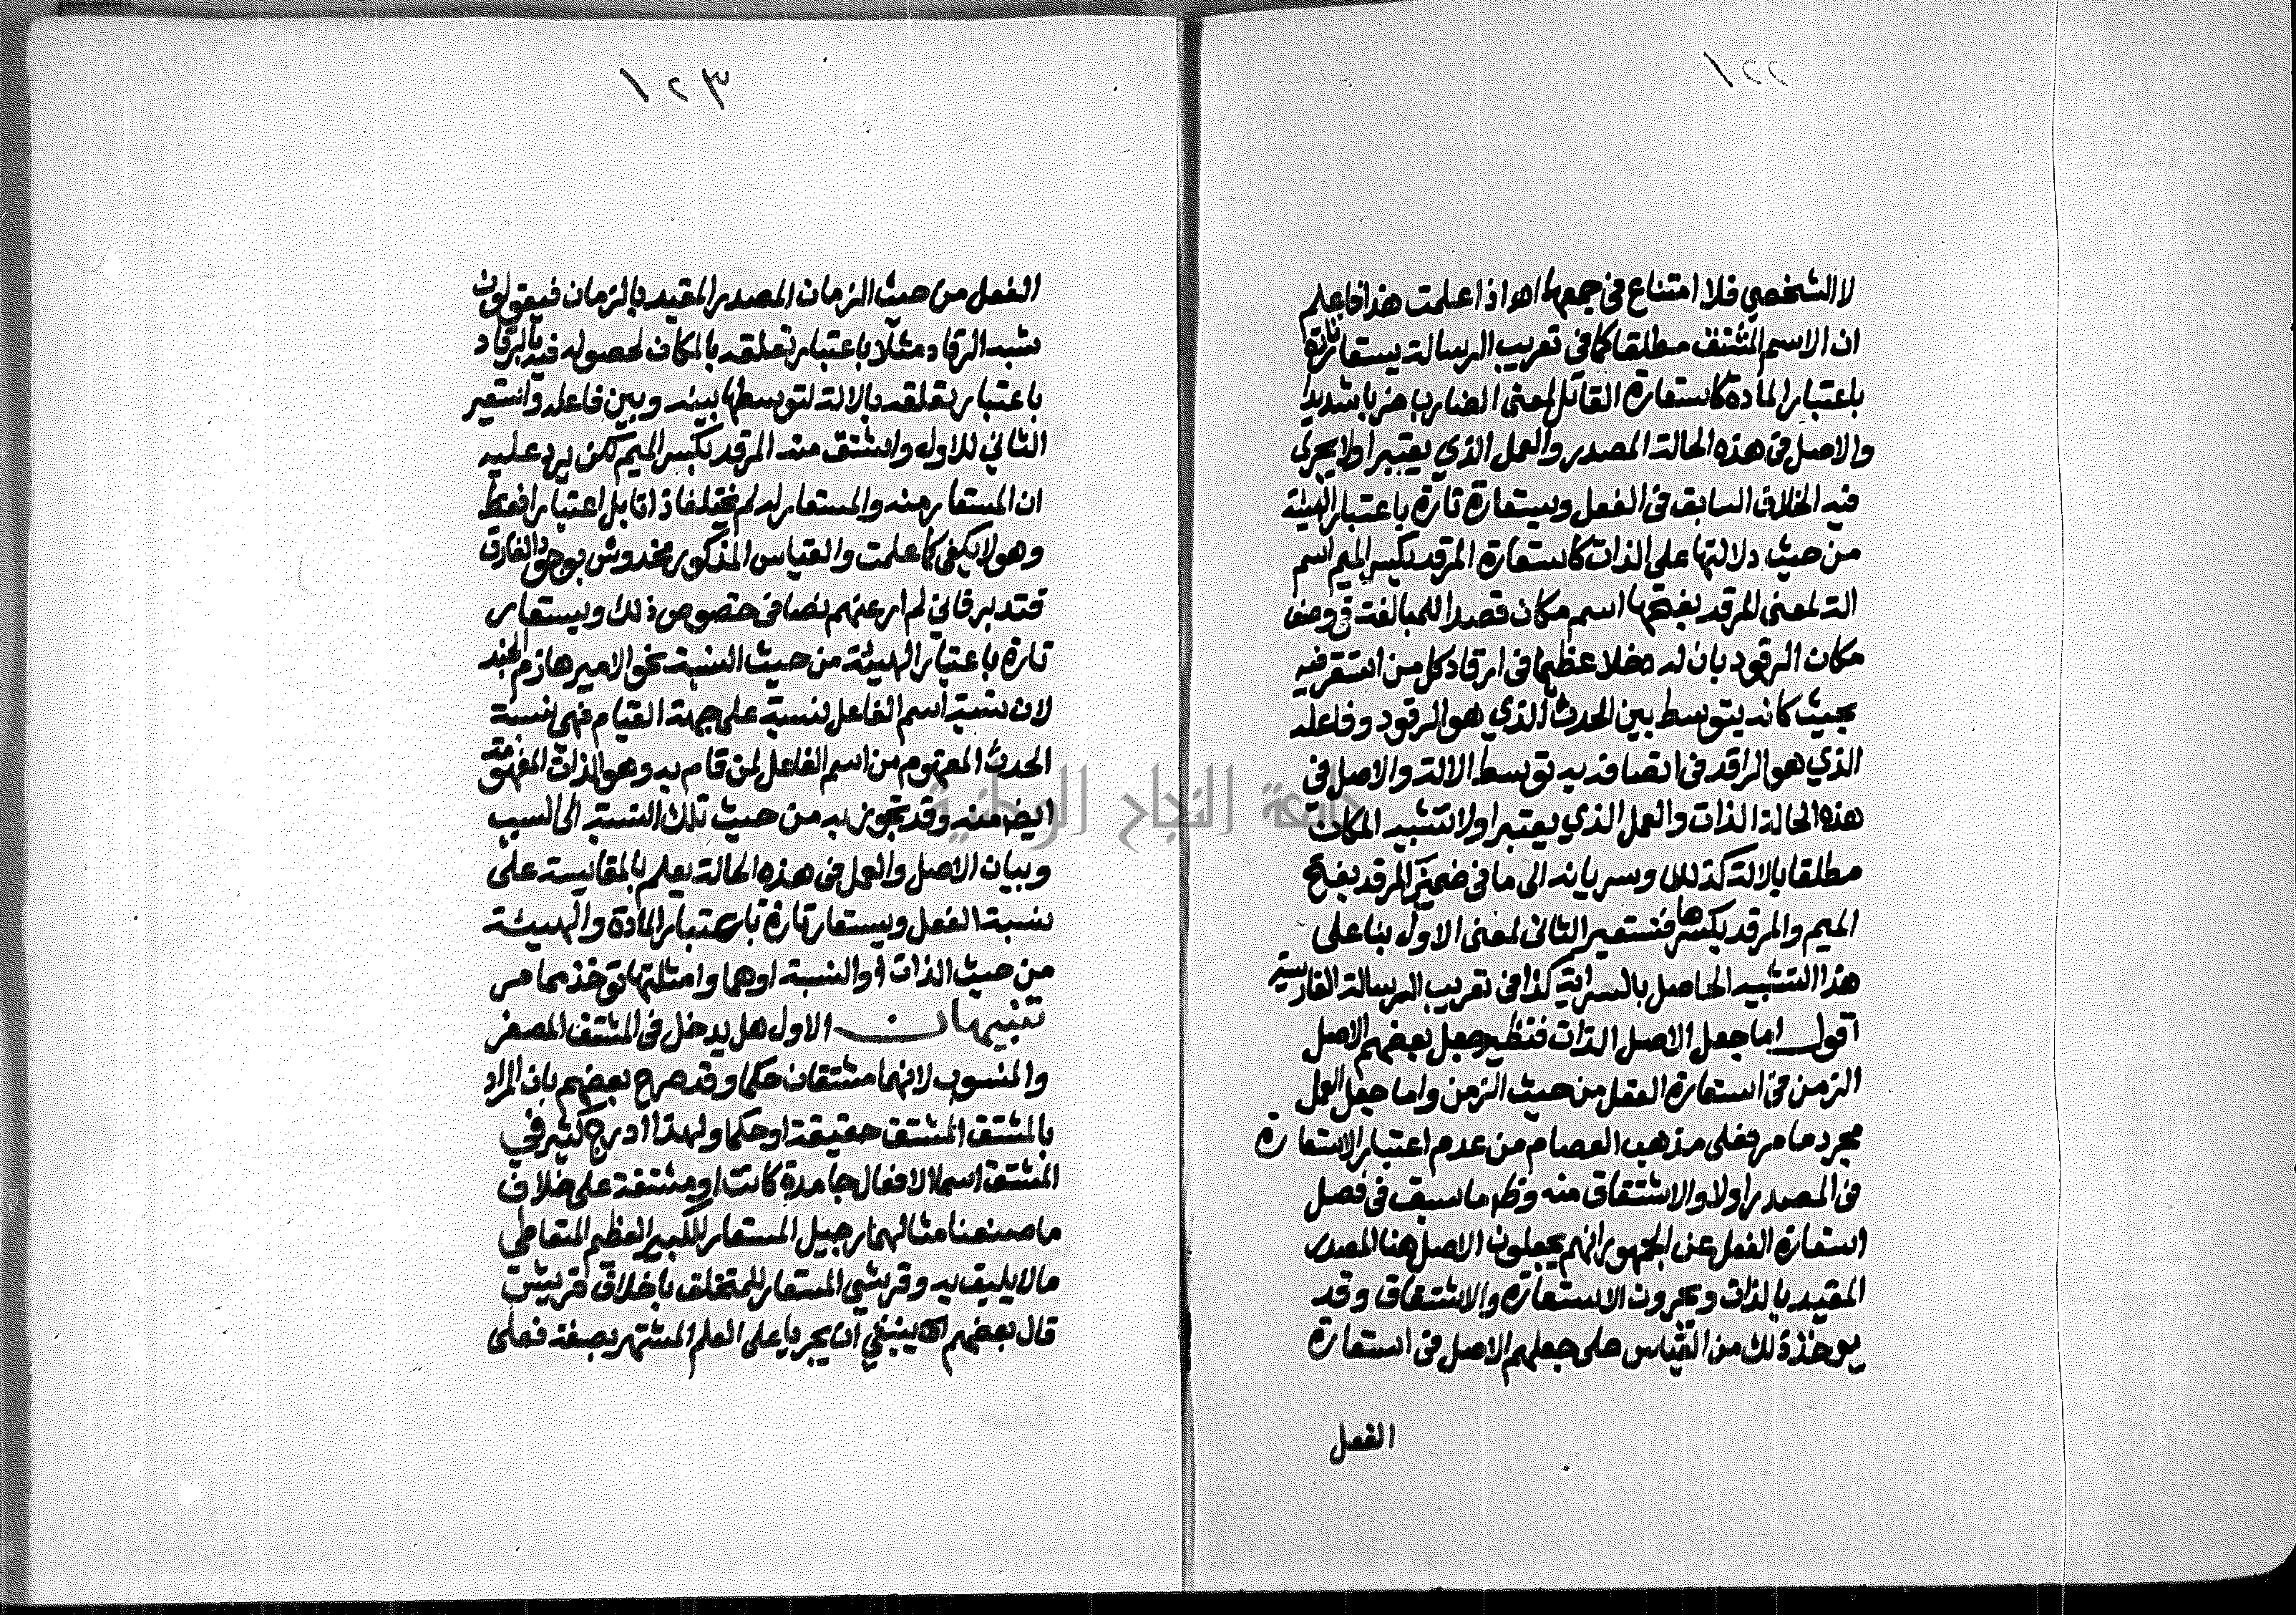 ١٢٢
لا الشخصي فلا امتناع في جمعها اهـ اذا علمت هذا فاعلم
ان الاسم المشتق مطلقا كما في تعريب الرسالة يستعار تارة
باعتبار المادة كاستعارة القاتل لمعنى الضارب ضربا شديدا
والاصل في هذه الحالة المصدر والعمل الذي يعتبر اولا يجري
فيه الخلاف السابق في الفعل ويستعارة تارة باعتبار الهيئة
من حيث دلالتها على الذات كاستعارة المرقد بكسر الميم اسم
الة لمعنى المرقد بفتحها اسم مكان قصدا للمبالغة في وصف
مكان الرقود بان له دخلا عظيما في ارقاد كل من استقر فيه
بحيث كانه يتوسط بين الحدث الذي هو الرقود وفاعله
الذي هو الراقد في اتصافه به توسط الالة والاصل في
هذه الحالة الذات والعمل الذي يعتبر اولا تشبيه المكان
مطلقا بالالة كذلك وسريانه الى ما في ضمن المرقد بفتح
الميم والمرقد بكسرها فنستعير الثاني لمعنى الاول بنا على
هذا التشبيه الحاصل بالسراية كذا في تعريب الرسالة الفارسية
اقول اما جعل الاصل الذات فنظير جعل بعضهم الاصل
الزمن في استعارة الفعل من حيث الزمن واما جعل العمل
مجرد ما مر فعلى مذهب العصام من عدم اعتبار الاستعارة
في المصدر اولا والاشتقاق منه وظهر ما سبق في فصل
استعارة الفعل عن الجمهور انهم يجعلون الاصل هنا المصدر
المقيد بالذات ويجرون الاستعارة والاشتقاق وقد
يوخذ ذلك من القياس على جعلهم الاصل في استعارة
الفعل
١٢٣
الفعل من حيث الزمان المصدر المقيد بالزمان فيقولون
شبه الرقاد مثلا باعتبار تعلقه بالمكان لحصوله فيه بالرقاد
باعتبار تعلقه بالالة لتوسطها بينه وبين فاعله واستعير
الثاني للاول واشتق منه المرقد بكسر الميم لكن يرد عليه
ان المستعار منه والمستعار له لم يختلفا ذاتا بل اعتبارا فقط
وهو لا يكفي كما علمت والقياس المذكور مخدوش بوجود الفارق
فتدبر فاني لم ار عنهم نصا في خصوص ذلك ويستعار
تارة باعتبار الهيئة من حيث النسبة نحو الامير هازم الجند
لان نسبة اسم الفاعل نسبة على جهة القيام فهي نسبة
الحدث المفهوم من اسم الفاعل لمن قام به وهو الذات المفهومة
ايضا منه وقد تجوز به من حيث تلك النسبة الى السبب
وبيان الاصل والعمل في هذه الحالة يعلم بالمقايسة على
نسبة الفعل ويستعار تارة باعتبار المادة والهيئة
من حيث الذات او النسبة او هما وامثلتها توخذ مما مر
تنبيهان الاول هل يدخل في المشتق المصغر
والمنسوب لانهما مشتقان حكما وقد صرح بعضهم بان المراد
بالمشتق المشتق حقيقة او حكما ولهذا ادرج كثير في
المشتق اسما الافعال جامدة كانت او مشتقة على خلاف
ما صنعنا مثالهما رجيل المستعار للكبير العظيم المتعاطي
ما لا يليق به وقريشي المستعار للمتخلق باخلاق قريش
قال بعضهم ينبغي ان يجريا على العلم المشتهر بصفة فعلى
جامعة النجاح الوطنية